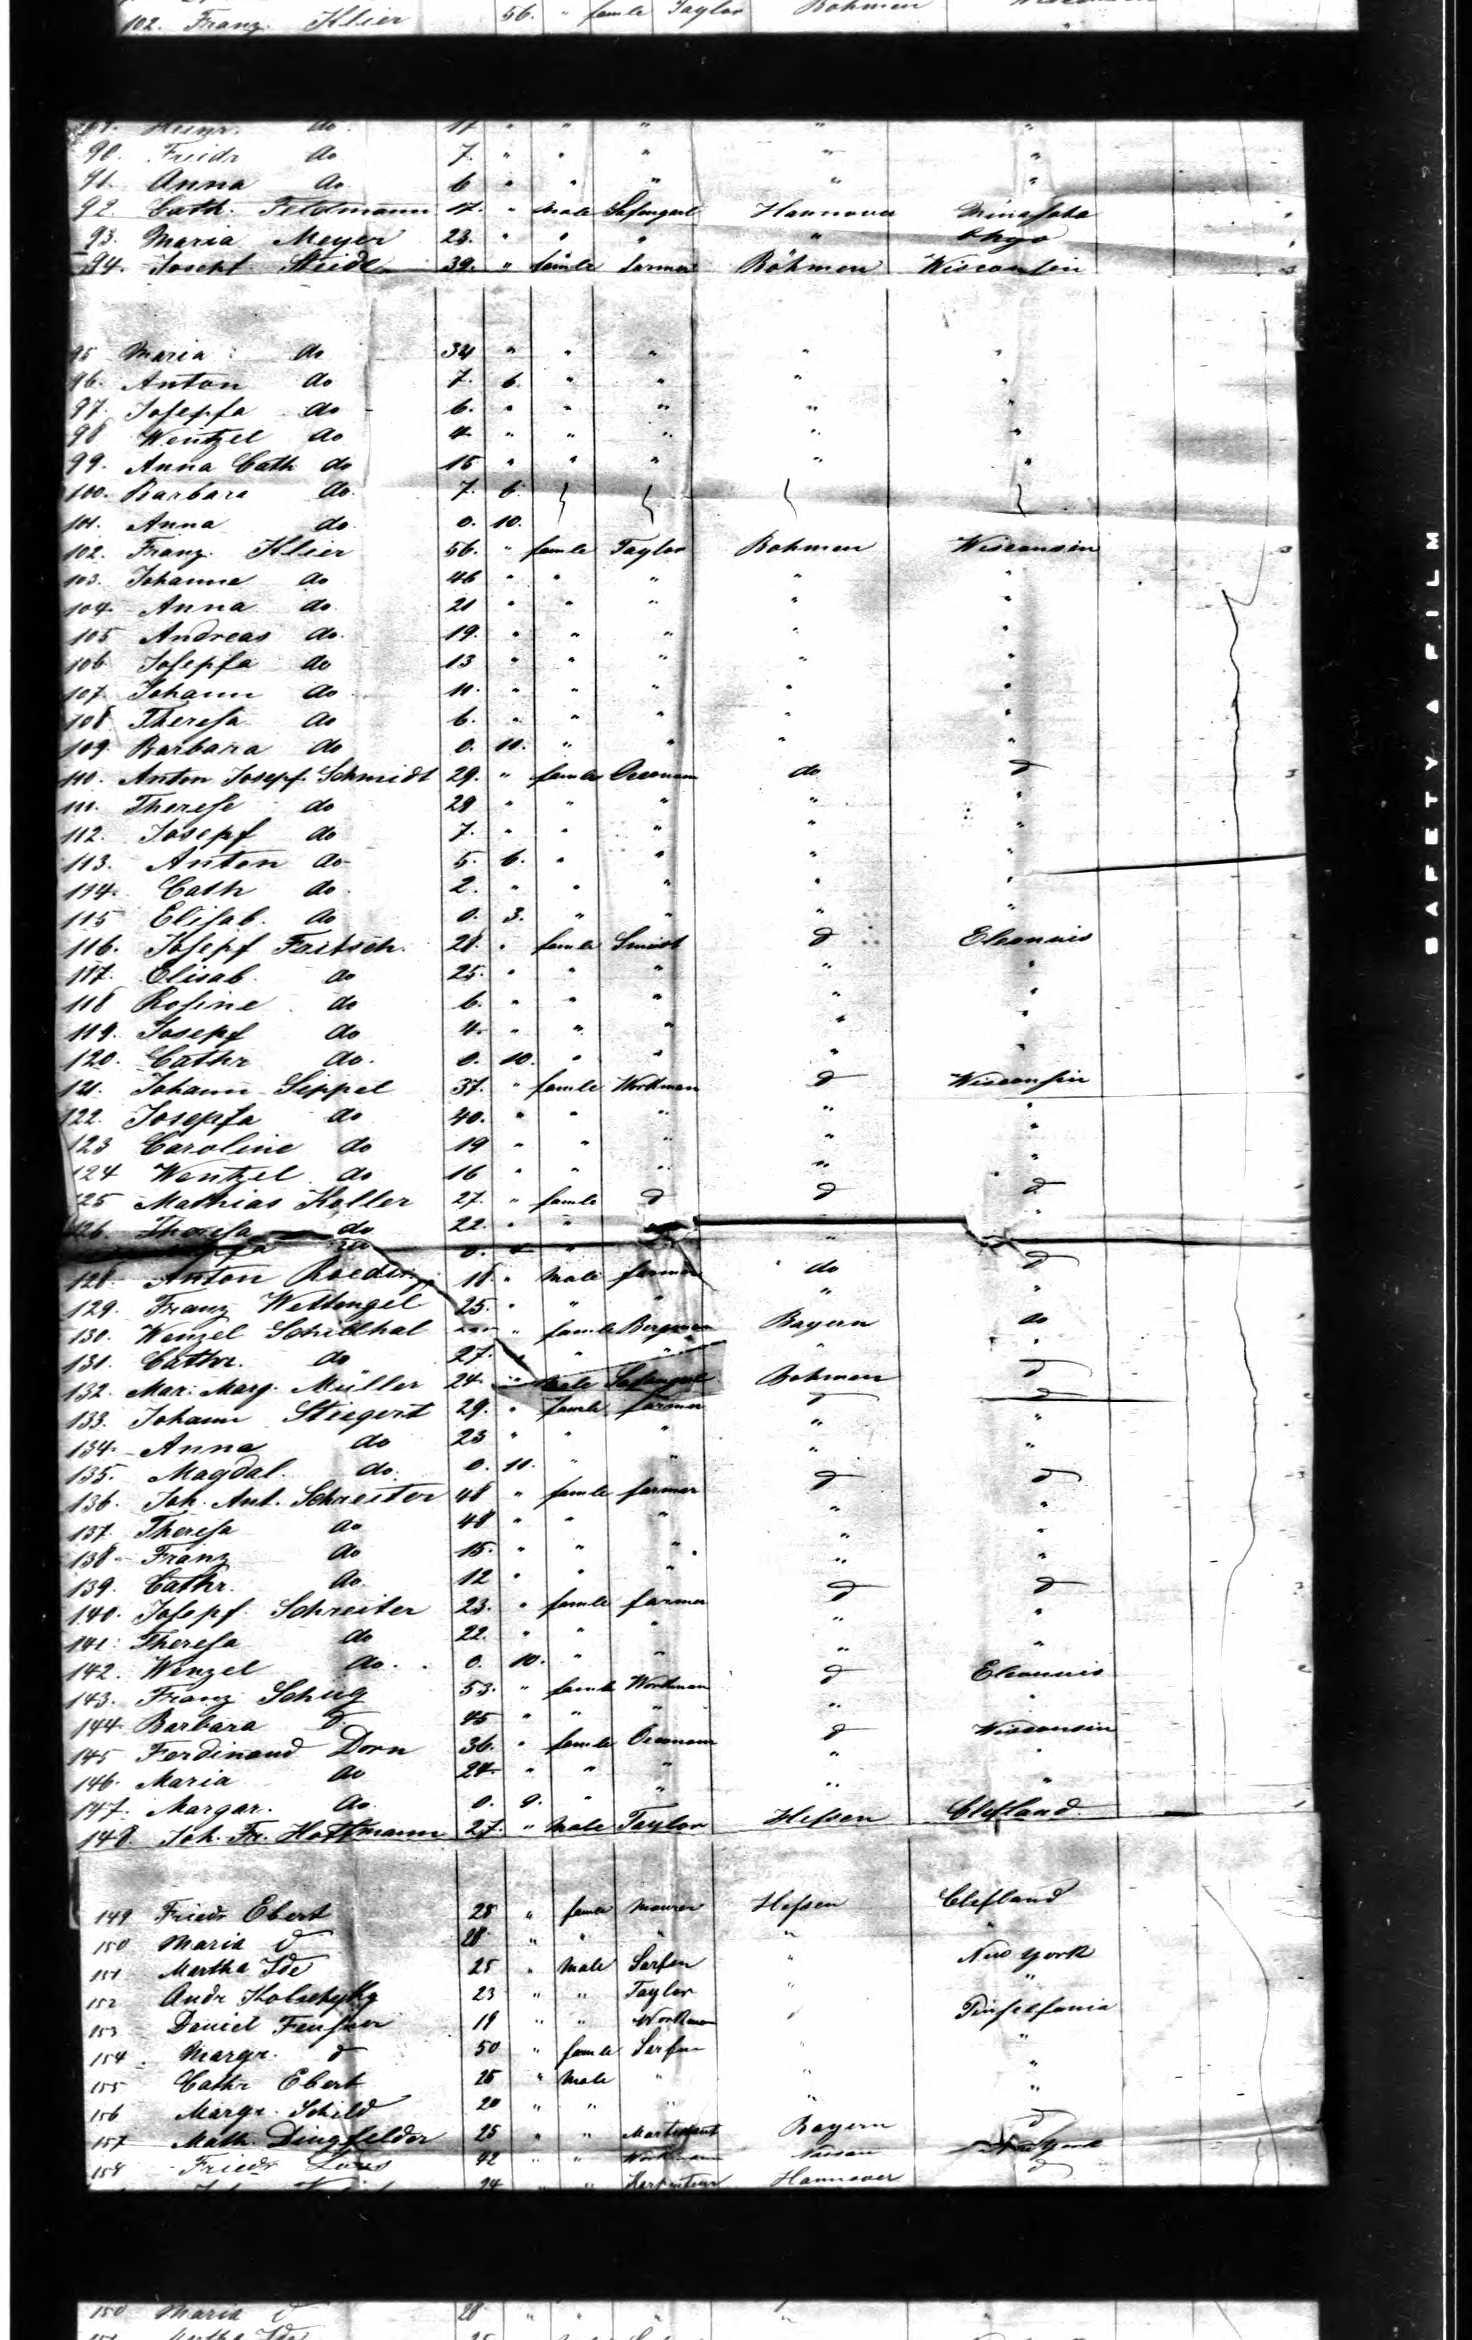 102. Franz Klier 56. " famle Taylor Bohmen
89. Heinr. do 17 " " " " "
90. Friedr do 7. " " " " "
91. Anna do 6 " " " " "
92. Cath. Feldmann 17. " Male Hannover Minasota
93. Maria Meyer 23. " " " " Ohyo
94. Joseph Steidl 39. " famle farmer Böhmen Wisconsin
95 Maria do 34 " " " " "
96. Anton do 7. 6. " " " "
97. Josepfa do 6. " " " " "
98 Wentzel do 4. " " " " "
99. Anna Cath do 15 " " " " "
100. Barbara do. 7. 6.
101. Anna do 0. 10.
102. Franz. Klier 56. " famle Taylor Bohmen Wisconsin
103. Johanna do 46 " " " " "
104. Anna do 21 " " " " "
105 Andreas do. 19. " " " " "
106 Josepfa do 13 " " " " "
107. Johann do 10. " " " " "
108 Theresa do 6. " " " " "
109. Barbara do 0. 10. " " " "
110. Anton Josepf. Schmidt 29. " famle Oeconom do d
111. Therese do 29 " " " " "
112. Josepf do 7. " " " " "
113. Anton do 5. 6. " " " "
114. Cath do. 2. " " " " "
115 Elisab. do 0. 3. " " " "
116. Josepf Fritsch. 28. " famle Smidt d Eleonnis
117. Elisab. do 25. " " " " "
118 Rosine do 6. " " " " "
119. Josepf do 4. " " " " "
120. Cathr do. 0. 10. " " " "
121. Johann Sippel 37. " famle Workman d Wisconsin
122. Josepfa do 40. " " " " "
123 Caroline do 19 " " " " "
124 Wentzel do 16 " " " " "
125 Mathias Koller 27. " famle d d d
126. Theresa do 22. " " " "
do 0. "
128. Anton 18. " Male farmer do d
129. Franz Wettengel 25. " " " " "
130. Wenzel Schillhal " famle Bergman Bayern do
131. Cathr. do 27. " " " "
132. Mar. Marg. Müller 24. " Male Bohmen d
133. Johann Stiegert 29. " famle farmer d d
134. Anna do 23 " " " " "
135. Magdal. do. 0. 10. " " " "
136. Joh. Ant. Schreiter 48 " famle farmer d d
137. Theresa do 48 " " " " "
138. Franz do 15. " " " " "
139. Cathr. do. 12 " " " " "
140. Josepf. Schreiter 23. " famle farmer d d
141. Theresa do 22. " " " " "
142. Wenzel do. 0. 10. " " " "
143. Franz Schug 53. " famle Workman d Eleonnis
144. Barbara d. 45 " " " " "
145 Ferdinand Dorn 36. " famle Oeconom d Wisconsin
146. Maria do 24. " " " " "
147. Margar. do. 0. 9. " " " "
148. Joh. Fr. Hoffmann 27. " Male Taylor Hessen Clefland
149 Friedr Ebert 28 " famle Maurer Hessen Clefland
150 Maria d 28 " " " " "
151 Martha Ide 25 " Male " New York
152 Andr 23 " " Taylor " "
153 Daniel 19 " " Workman " Pinselfania
154 Margr. d 50 " famle "
155 Cathr Ebert 25 " Male " "
156 Margr. Schild 20 " " " " "
157 Math. Dingfelder 25 " " Bayern d
158 Friedr 42 " " Workman Nassau New York
24 " " Hannover d
150 Maria d 28 " " " " "
SAFETY A FILM